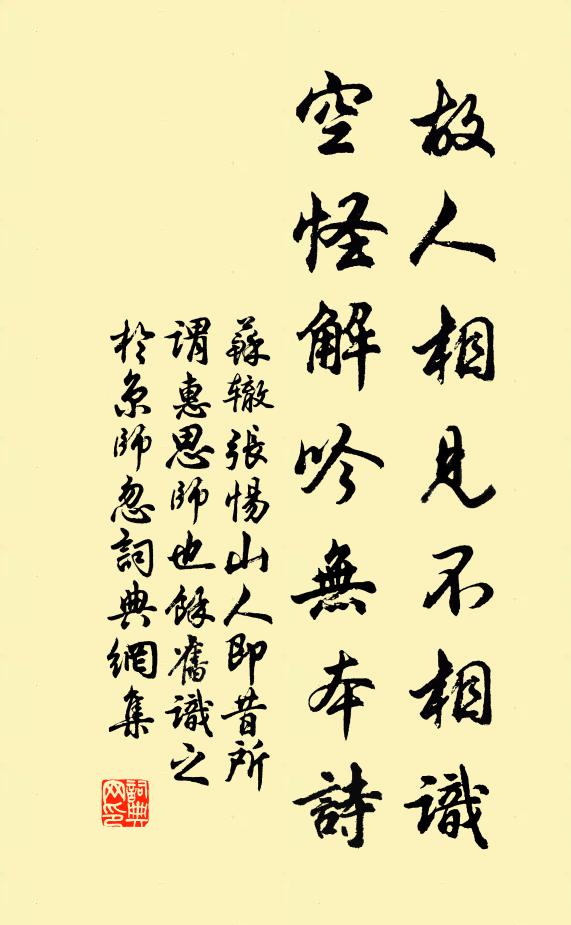 故人相見不相識
空怪解吟無本詩
蘇轍張惕山人即昔所
謂惠思師也餘舊識之
於京師忽詞典網集
詞典
網印